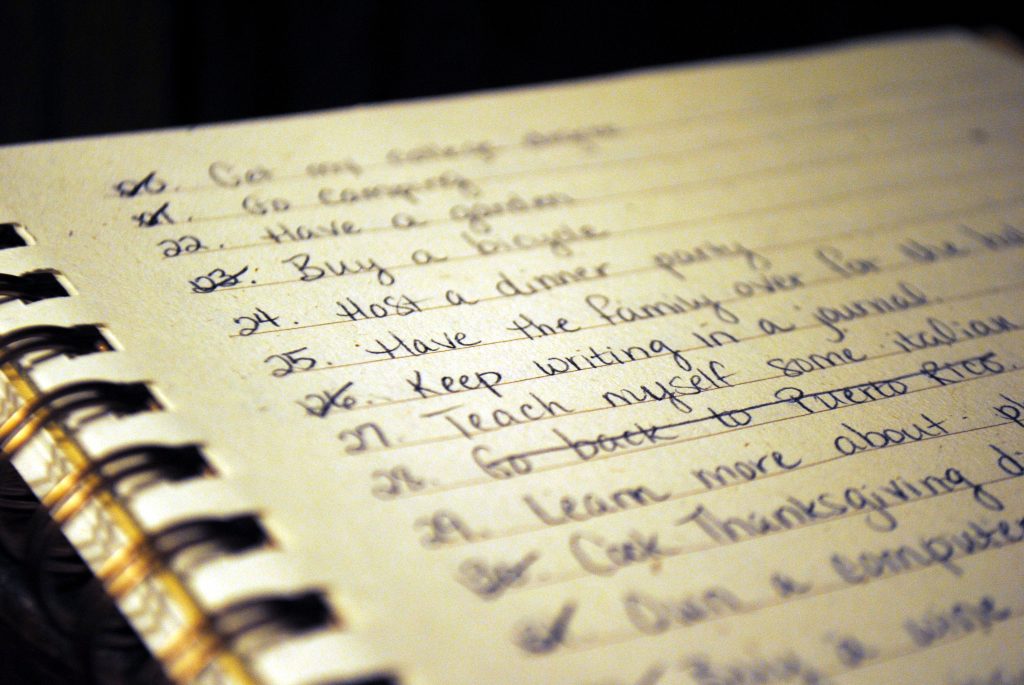 20. Get my college degree
21. Go camping
22. Have a garden
23. Buy a bicycle
24. Host a dinner party
25. Have the family over for the
26. Keep writing in a journal.
27. Teach myself some italian
28. Go back to Puerto Rico.
29. Learn more about
30. Cook Thanksgiving
31. Own a computer
a